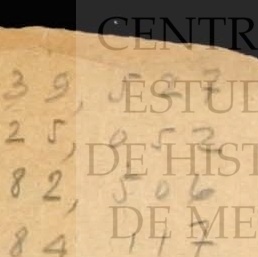 CENTR
39,527
ESTUD
25,052
DE HIST
82,506
DE ME
84,117